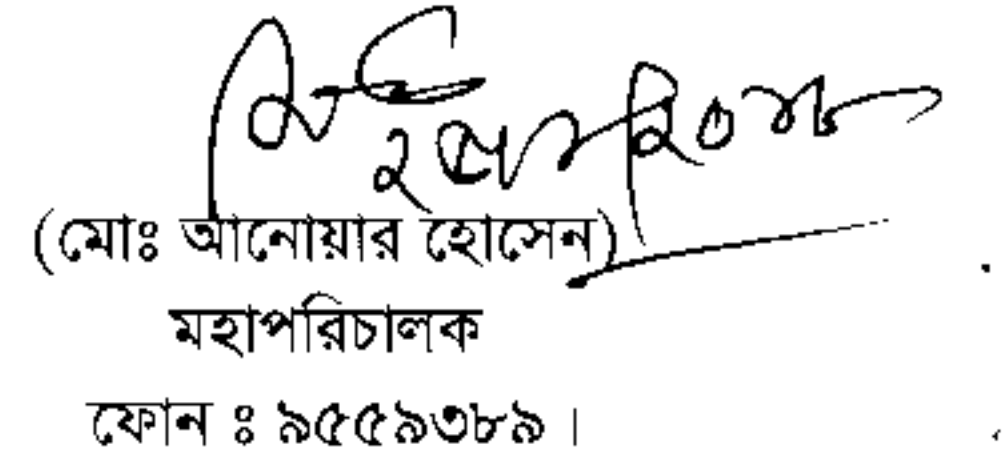 (মোঃ আনোয়ার হোসেন)
মহাপরিচালক
ফোন ঃ ৯৫৫৯৩৮৯।